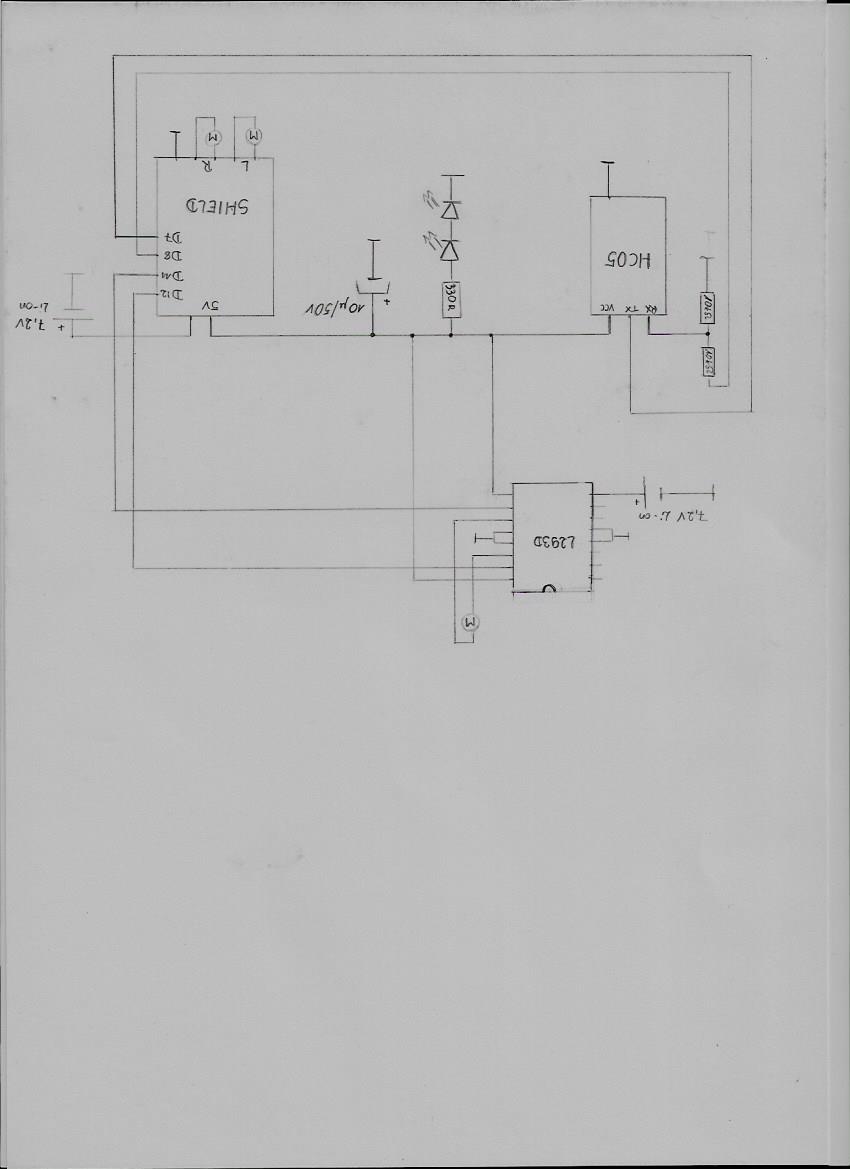 M
L293D
7,2V Li-on
+
10kΩ
10kΩ
RX TX VCC
HC05
330R
+
10µ/50V
5V
D12
D11
D8
D7
SHIELD
L R
M M
+ 7,2V
Li-on